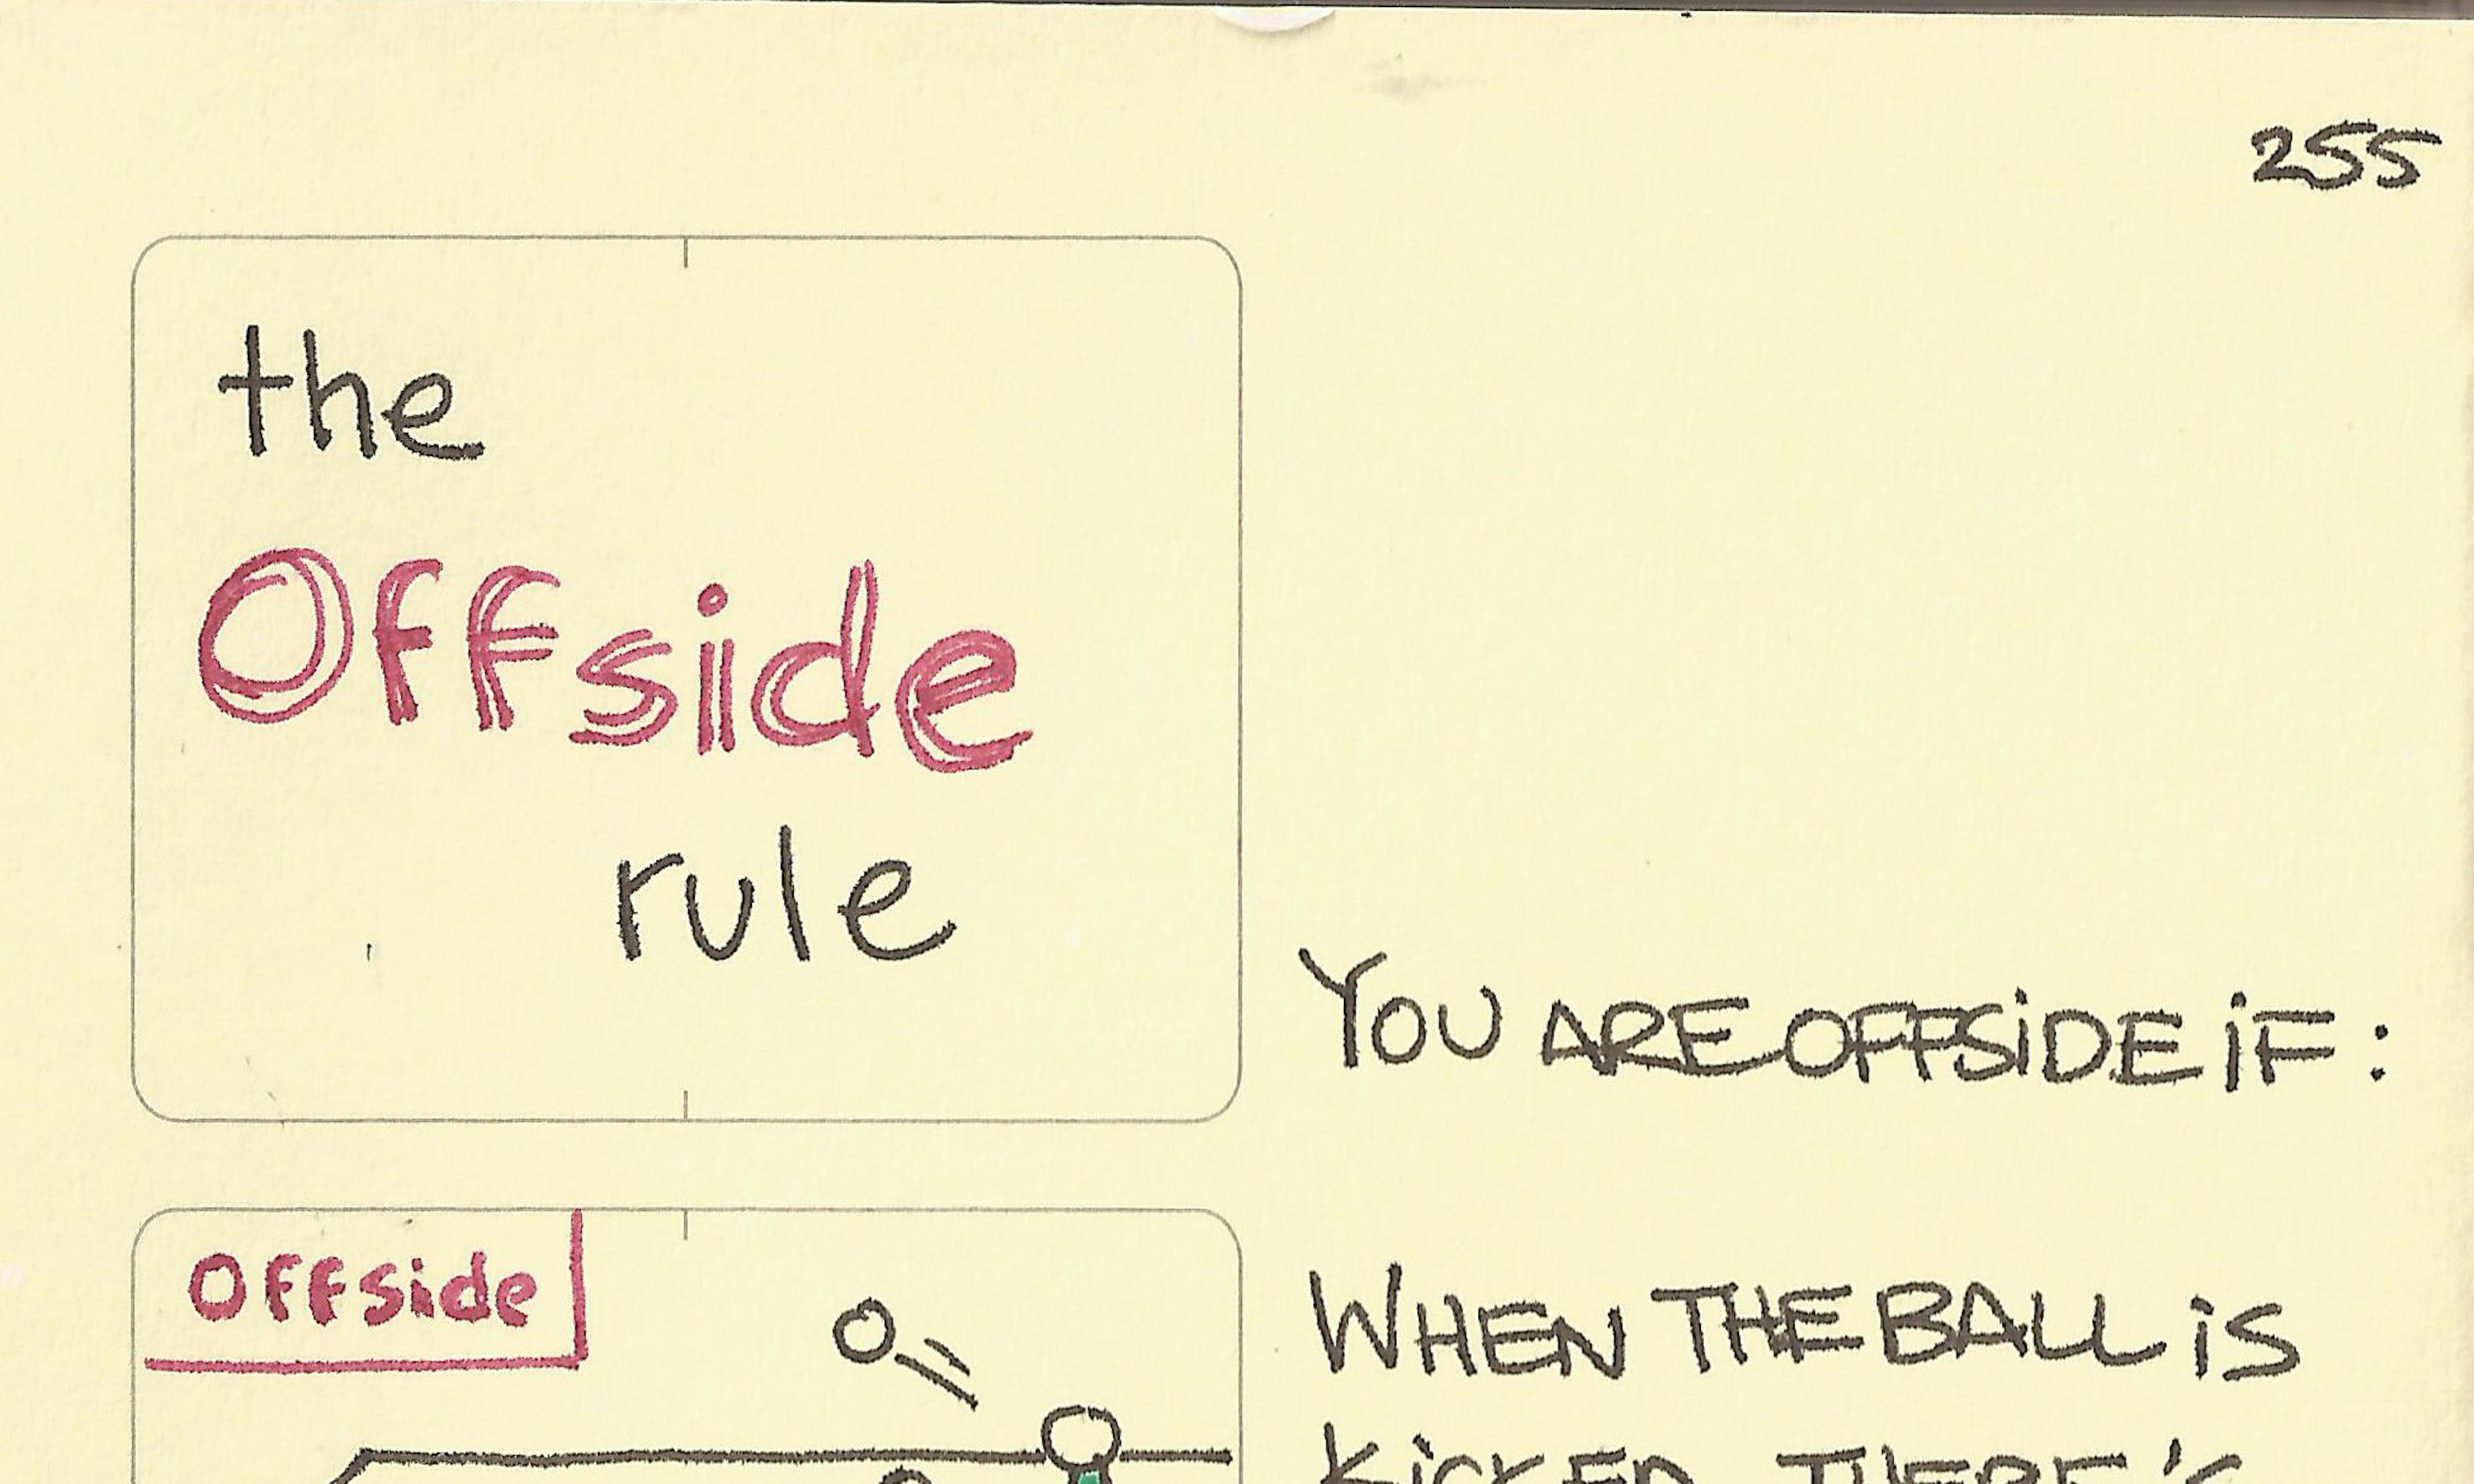 255
the
Offside
rule
YOU ARE OFFSiDE iF:
Offside
WHEN THE BALL iS
KiCKED, THERE'S